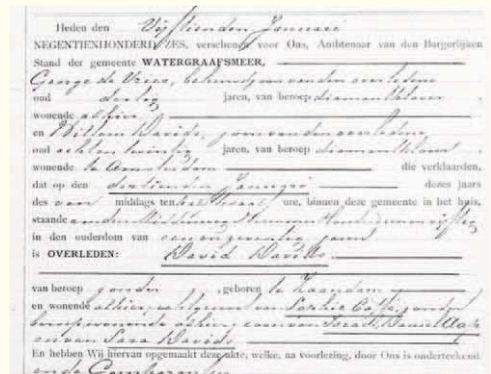 Heden den Vijftienden Januari
NEGENTIENHONDERD ZES, verscheen voor Ons, Ambtenaar van den Burgerlijken
Stand der gemeente WATERGRAAFSMEER,
George de Vries, behuwdzoon van den overledene
oud dertig jaren, van beroep diamantklover
wonende alhier
en Willem Davids, zoon van den overledene
oud achten twintig jaren, van beroep
wonende te Amsterdam die verklaarden,
dat op den dertienden Januari dezes jaars
des voor middags ten ure, binnen deze gemeente in het huis,
staande aan den Middenweg Nummer Honderd
in den ouderdom van een en zeventig jaren
is OVERLEDEN: David Davids
van beroep zonder, geboren te Zaandam
en wonende alhier, echtgenoot van Sophie zonder
beroep wonende alhier, zoon van
en van Sara Davids
En hebben Wij hiervan opgemaakt deze akte, welke, na voorlezing, door Ons is onderteekend
en de Comparanten